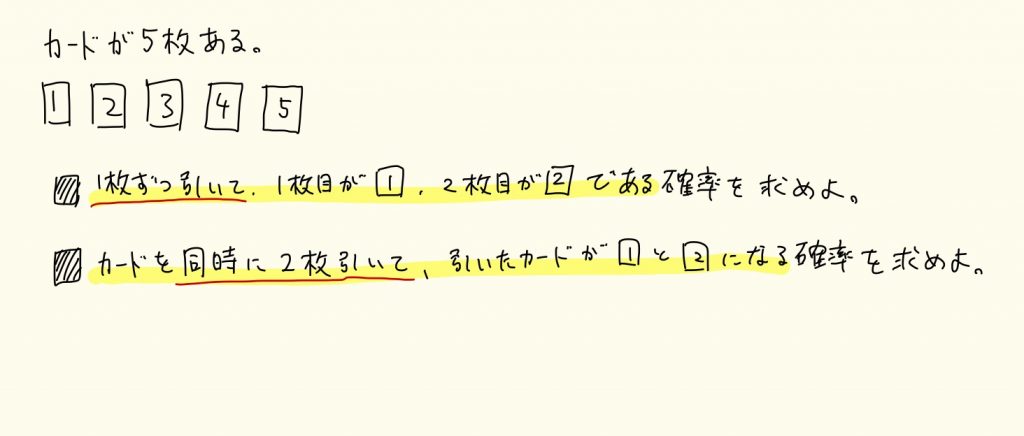 カードが5枚ある。
1 2 3 4 5
1枚ずつ引いて、1枚目が1、2枚目が2である確率を求めよ。
カードを同時に2枚引いて、引いたカードが1と2になる確率を求めよ。